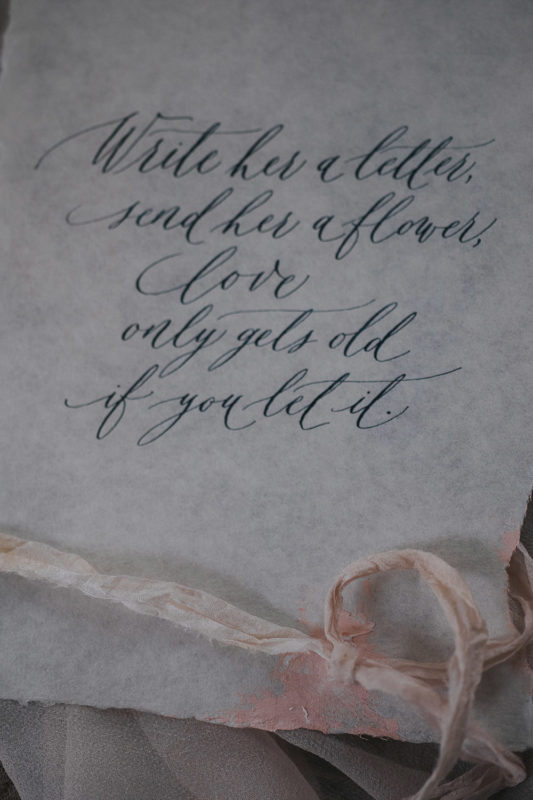 Write her a letter,
send her a flower,
love
only gets old
if you let it.